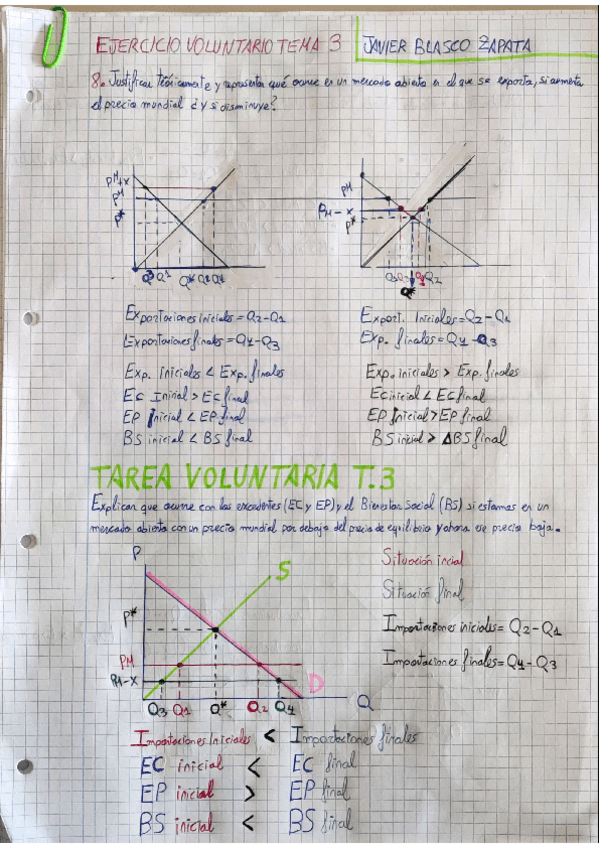 EJERCICIO VOLUNTARIO TEMA 3
JAVIER BLASCO ZAPATA
8. Justificar teóricamente y representa qué ocurre en un mercado abierto en el que se exporta, si aumenta
el precio mundial d y si disminuye?
PM+x
PM
P*
Q3 Q1 Q* Q2 Q4
PM
PM-x
P*
Q3 Q1 Q4 Q2
Q*
Exportaciones iniciales = Q2-Q1
Exportaciones finales = Q4-Q3
Exp. iniciales < Exp. finales
EC Inicial > EC final
EP Inicial < EP final
BS inicial < BS final
Export. Iniciales = Q2-Q1
Exp. finales = Q4-Q3
Exp. iniciales > Exp. finales
EC inicial < EC final
EP Inicial > EP final
BS inicial > BS final
TAREA VOLUNTARIA T.3
Explicar que ocurre con los excedentes (EC y EP) y el Bienestar Social (BS) si estamos en un
mercado abierto con un precio mundial por debajo del precio de equilibrio y ahora ese precio baja.
P
S
P*
PM
PM-x
D
Q3 Q1 Q* Q2 Q4 Q
Situación inicial
Situación final
Importaciones iniciales = Q2-Q1
Importaciones finales = Q4-Q3
Importaciones Iniciales < Importaciones finales
EC inicial < EC final
EP inicial > EP final
BS inicial < BS final